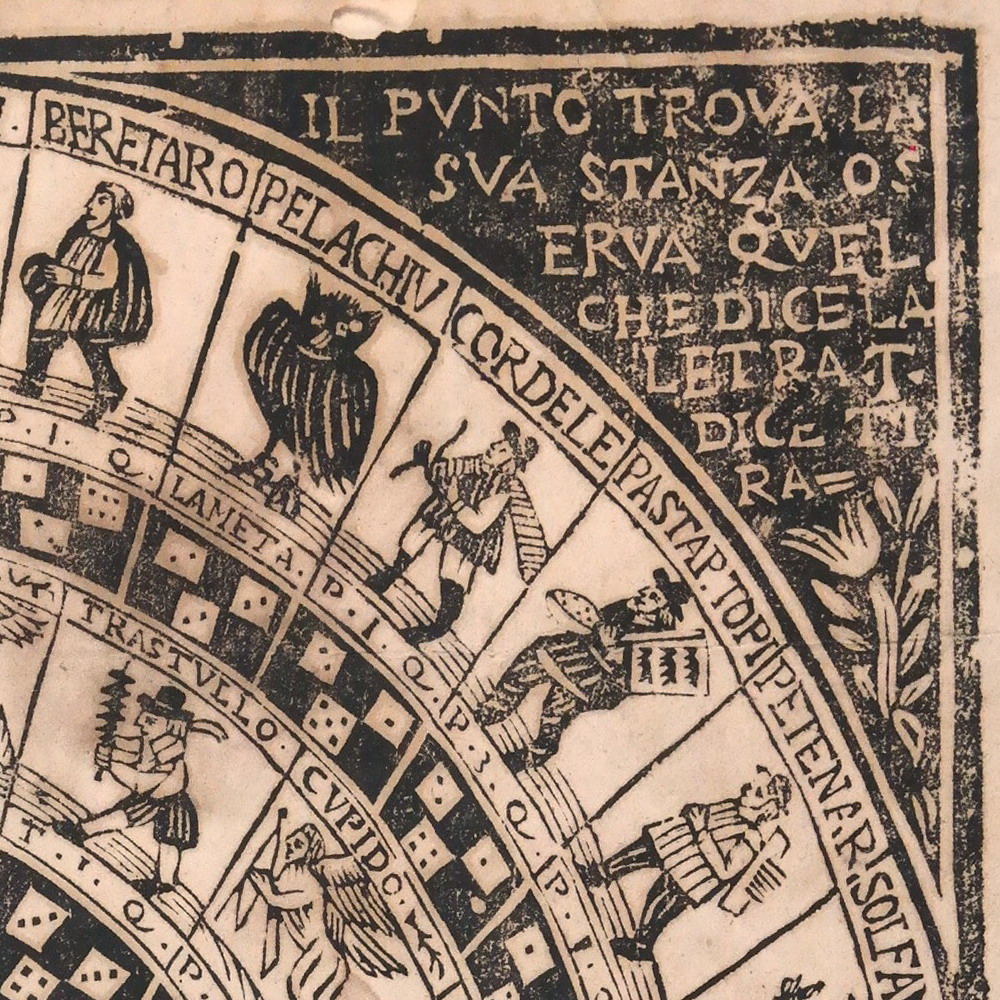 IL PVNTO TROVA LA
SVA STANZA OS
ERVA QVEL
CHE DICE LA
LETRA T.
DICE TI
RA=
BERETARO
PELACHIV
CORDELE
PASTAP.TOPI
PETENARISOLFA
P. I. Q.
LAMETA.
P. I. Q.
P. 3. Q
P. I.
TRASTVLLO.
CVPIDO.
T. I. Q. P.